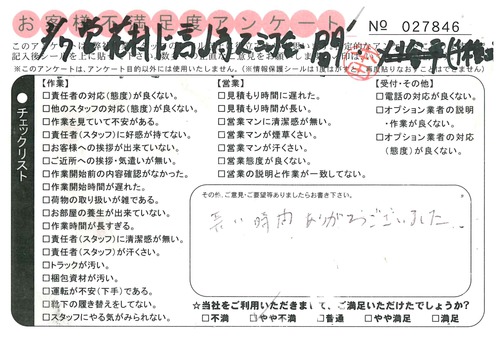 お客様不満足度アンケート
No 027846
※このアンケートは、アンケート目的以外には使用しません。
チェックリスト
【作業】
□責任者の対応(態度)が良くない。
□他のスタッフの対応(態度)が良くない。
□作業を見ていて不安がある。
□責任者(スタッフ)に好感が持てない。
□お客様への挨拶が出来ていない。
□ご近所への挨拶・気遣いが無い。
□作業開始前の内容確認がなかった。
□作業開始時間が遅れた。
□荷物の取り扱いが雑である。
□お部屋の養生が出来ていない。
□作業時間が長すぎる。
□責任者(スタッフ)に清潔感が無い。
□責任者(スタッフ)が汗くさい。
□トラックが汚い。
□梱包資材が汚い。
□運転が不安(下手)である。
□靴下の履き替えをしてない。
□スタッフにやる気がみられない。
【営業】
□見積もり時間に遅れた。
□見積もり時間が長い。
□営業マンに清潔感が無い。
□営業マンが煙草くさい。
□営業マンが汗くさい。
□営業態度が良くない。
□営業の説明と作業が一致してない。
【受付・その他】
□電話の対応が良くない。
□オプション業者の説明
・作業が良くない。
□オプション業者の対応
(態度)が良くない。
その他、ご意見・ご要望等ありましたらお書き下さい。
長い時間ありがとうございました。
☆当社をご利用いただきまして、ご満足いただけたでしょうか?
□不満 □やや不満 □普通 □やや満足 □満足